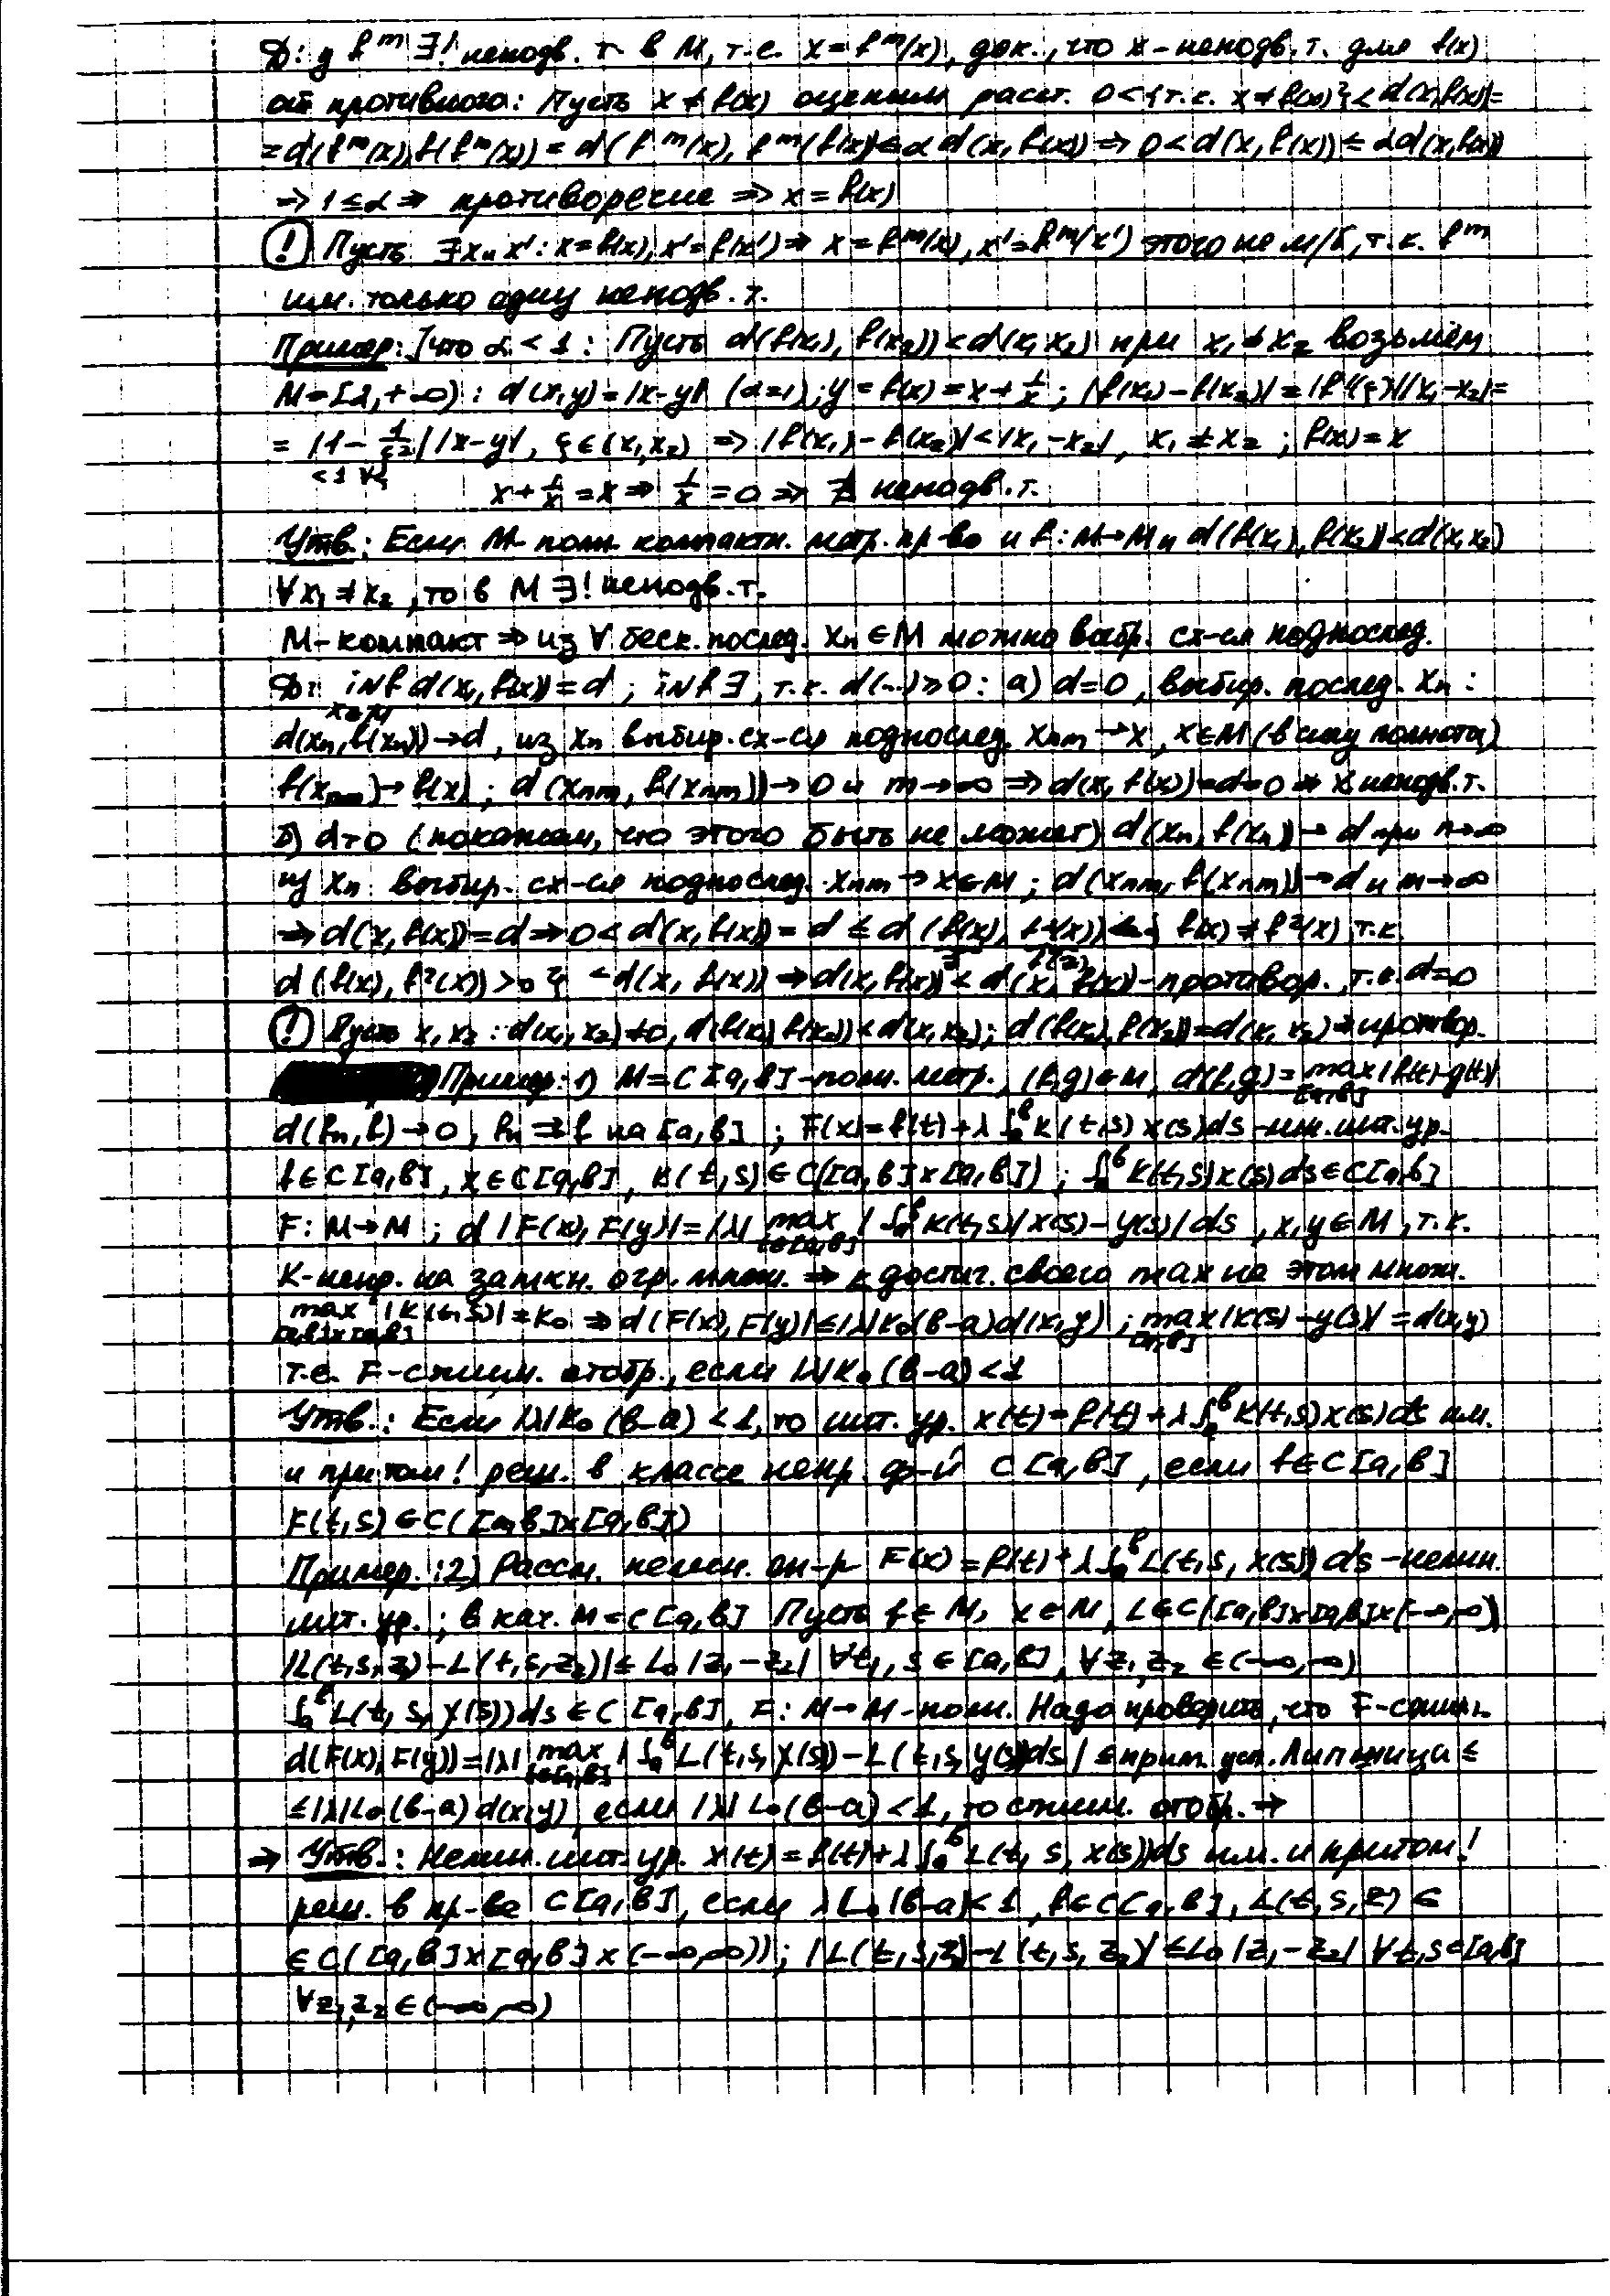 Д: у f^m ∃! неподв. т. в M, т.е. x = f^m(x), док., что x - неподв. т. для f(x)
от противного: Пусть x ≠ f(x) оценим расст. 0 < {т.е. x ≠ f(x)} < d(x, f(x)) =
= d(f^m(x), f(f^m(x)) = d(f^m(x), f^m(f(x)) ≤ α d(x, f(x)) ⇒ 0 < d(x, f(x)) ≤ αd(x, f(x))
⇒ 1 ≤ α ⇒ противоречие ⇒ x = f(x)
(!) Пусть ∃ x и x' : x = f(x), x' = f(x') ⇒ x = f^m(x), x' = f^m(x') этого не м/б, т.к. f^m
им. только одну неподв. т.
Пример: что α < 1 : Пусть d(f(x₁), f(x₂)) < d(x₁ x₂) при x₁ ≠ x₂ возьмём
M = [1, +∞) : d(x, y) = |x-y| (α=1); y = f(x) = x + 1/x ; |f(x₁) - f(x₂)| = |f'(ξ)||x₁ - x₂| =
= |1 - 1/ξ²| |x-y|, ξ ∈ (x₁, x₂) ⇒ |f(x₁) - f(x₂)| < |x₁ - x₂|, x₁ ≠ x₂ ; f(x) = x
<1 ∀ξ x + 1/x = x ⇒ 1/x = 0 ⇒ ∄ неподв. т.
Утв.: Если M - полн. компактн. метр. пр-во и f: M→M и d(f(x₁), f(x₂)) < d(x₁ x₂)
∀x₁ ≠ x₂, то в M ∃! неподв. т.
M - компакт ⇒ из ∀ беск. послед. xₙ ∈ M можно выбр. сх-ся подпослед.
Д: inf d(x, f(x)) = d ; inf ∃, т.к. d(...) ≥ 0 : а) d=0, выбир. послед. xₙ :
x∈M
d(xₙ, f(xₙ)) → d, из xₙ выбир. сх-ся подпослед. xₙₘ → x, x ∈ M (в силу полноты)
f(xₙₘ) → f(x) ; d(xₙₘ, f(xₙₘ)) → 0 и m → ∞ ⇒ d(x, f(x)) = d = 0 ⇒ x неподв. т.
б) d > 0 (покажем, что этого быть не может) d(xₙ, f(xₙ)) → d при n → ∞
из xₙ выбир. сх-ся подпослед. xₙₘ → x ∈ M ; d(xₙₘ, f(xₙₘ)) → d и m → ∞
⇒ d(x, f(x)) = d ⇒ 0 < d(x, f(x)) = d ≤ d(f(x), f²(x)) < { f(x) ≠ f²(x) т.к.
d(f(x), f²(x)) > 0 } < d(x, f(x)) ⇒ d(x, f(x)) < d(x, f(x)) - противор., т.е. d = 0
(!) Пусть x₁ x₂ : d(x₁, x₂) ≠ 0, d(f(x₁) f(x₂)) < d(x₁ x₂) ; d(f(x₁), f(x₂)) = d(x₁ x₂) ⇒ противор.
Пример: 1) M = C[a, b] - полн. метр., (f, g) ∈ M, d(f, g) = max |f(t) - g(t)|
[a, b]
d(fₙ, f) → 0, fₙ ⇉ f на [a, b] ; F(x) = f(t) + λ ∫ₐᵇ K(t, s) x(s) ds - лин. инт. ур.
f ∈ C[a, b], x ∈ C[a, b], K(t, s) ∈ C([a, b] × [a, b]) ; ∫ₐᵇ K(t, s) x(s) ds ∈ C[a, b]
F: M → M ; d|F(x), F(y)| = |λ| max | ∫ₐᵇ K(t, s) |x(s) - y(s)| ds, x, y ∈ M, т.к.
t∈[a,b]
K - непр. на замкн. огр. множ. ⇒ K достиг. своего max на этом множ.
max |K(t, s)| = K₀ ⇒ d(F(x), F(y)| ≤ |λ| K₀(b-a) d(x, y) ; max |x(s) - y(s)| = d(x, y)
[a,b]×[a,b] [a,b]
т.е. F - сжим. отобр., если |λ| K₀ (b-a) < 1
Утв.: Если |λ| K₀ (b-a) < 1, то инт. ур. x(t) = f(t) + λ ∫ₐᵇ K(t, s) x(s) ds им.
и притом ! реш. в классе непр. ф-й C[a, b], если f ∈ C[a, b]
K(t, s) ∈ C([a, b] × [a, b])
Пример: 2) Рассм. нелин. оп-р F(x) = f(t) + λ ∫ₐᵇ L(t, s, x(s)) ds - нелин.
инт. ур. ; в кач. M = C[a, b] Пусть f ∈ M, x ∈ M, L ∈ C([a, b] × [a, b] × (-∞, ∞))
|L(t, s, z₁) - L(t, s, z₂)| ≤ L₀ |z₁ - z₂| ∀t, s ∈ [a, b], ∀z₁ z₂ ∈ (-∞, ∞)
∫ₐᵇ L(t, s, x(s)) ds ∈ C[a, b], F: M → M - полн. Надо проверить, что F - сжим.
d(F(x), F(y)) = |λ| max | ∫ₐᵇ L(t, s, x(s)) - L(t, s, y(s)) ds | ≤ прим. усл. Липшица ≤
t∈[a,b]
≤ |λ| L₀ (b-a) d(x, y), если |λ| L₀ (b-a) < 1, то сжим. отобр. ⇒
⇒ Утв.: Нелин. инт. ур. x(t) = f(t) + λ ∫ₐᵇ L(t, s, x(s)) ds им. и притом !
реш. в пр-ве C[a, b], если λ L₀ (b-a) < 1, f ∈ C[a, b], L(t, s, z) ∈
∈ C([a, b] × [a, b] × (-∞, ∞)) ; |L(t, s, z₁) - L(t, s, z₂)| ≤ L₀ |z₁ - z₂| ∀t, s ∈ [a, b]
∀z₁, z₂ ∈ (-∞, ∞)